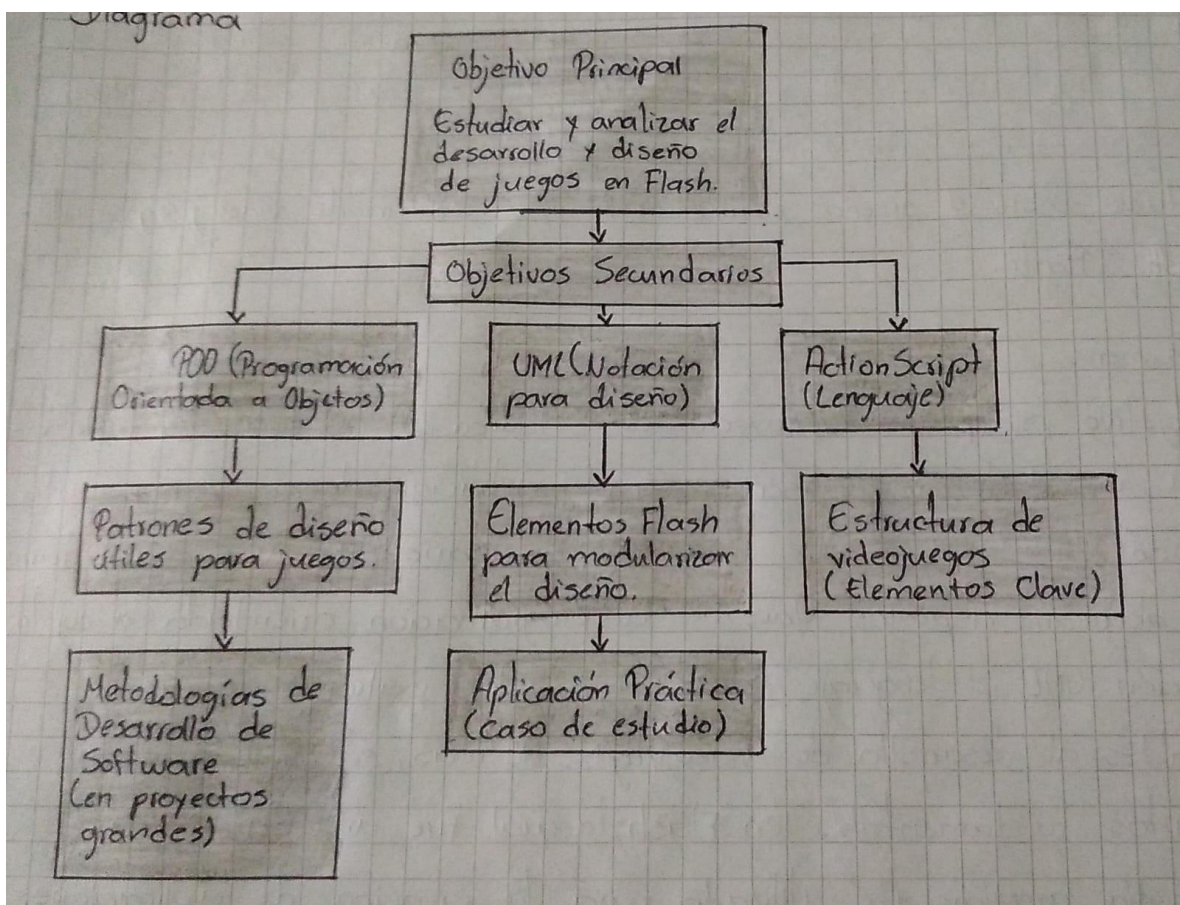 Diagrama
Objetivo Principal
Estudiar y analizar el
desarrollo y diseño
de juegos en Flash.
Objetivos Secundarios
POO (Programación
Orientada a Objetos)
UML (Notación
para diseño)
ActionScript
(Lenguaje)
Patrones de diseño
útiles para juegos.
Elementos Flash
para modularizar
el diseño.
Estructura de
videojuegos
(Elementos Clave)
Metodologías de
Desarrollo de
Software
(en proyectos
grandes)
Aplicación Práctica
(caso de estudio)